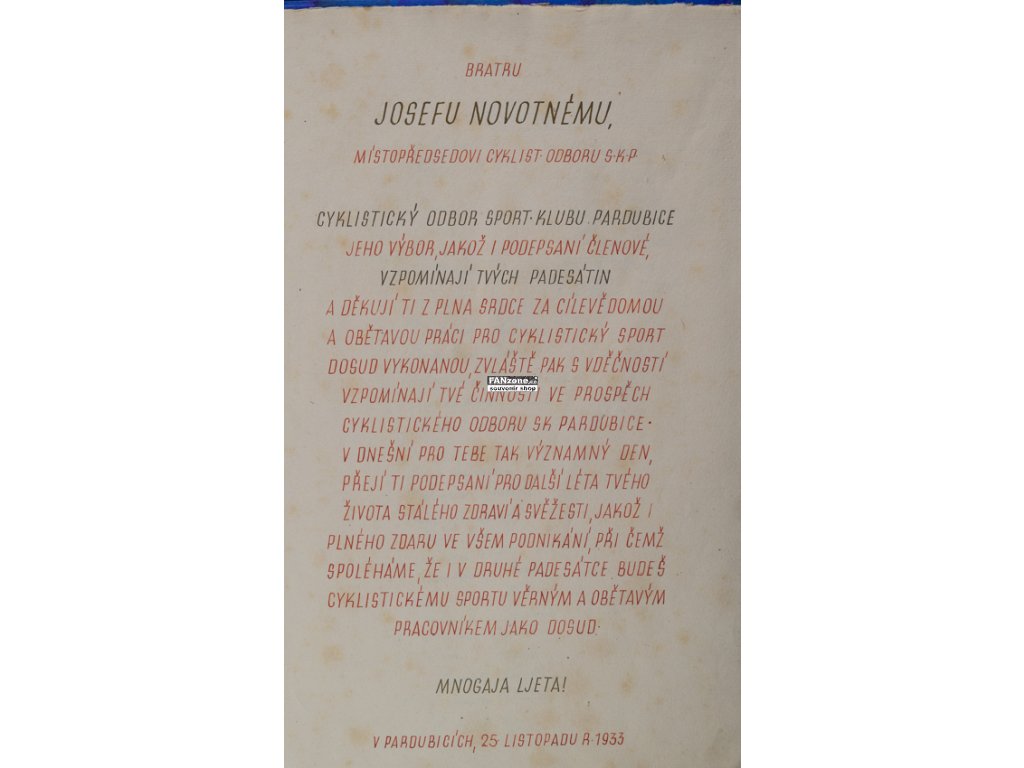 BRATRU
JOSEFU NOVOTNÉMU,
MÍSTOPŘEDSEDOVI CYKLIST· ODBORU S·K·P·
CYKLISTICKÝ ODBOR SPORT· KLUBU PARDUBICE
JEHO VÝBOR, JAKOŽ I PODEPSANÍ ČLENOVÉ,
VZPOMÍNAJÍ TVÝCH PADESÁTIN
A DĚKUJÍ TI Z PLNA SRDCE ZA CÍLEVĚDOMOU
A OBĚTAVOU PRÁCI PRO CYKLISTICKÝ SPORT
DOSUD VYKONANOU, ZVLÁŠTĚ PAK S VDĚČNOSTÍ
FANzone.cz
souvenir shop
VZPOMÍNAJÍ TVÉ ČINNOSTI VE PROSPĚCH
CYKLISTICKÉHO ODBORU SK PARDUBICE·
V DNEŠNÍ PRO TEBE TAK VÝZNAMNÝ DEN,
PŘEJÍ TI PODEPSANÍ PRO DALŠÍ LÉTA TVÉHO
ŽIVOTA STÁLÉHO ZDRAVÍ A SVĚŽESTI, JAKOŽ I
PLNÉHO ZDARU VE VŠEM PODNIKÁNÍ, PŘI ČEMŽ
SPOLÉHÁME, ŽE I V DRUHÉ PADESÁTCE BUDEŠ
CYKLISTICKÉMU SPORTU VĚRNÝM A OBĚTAVÝM
PRACOVNÍKEM JAKO DOSUD·
MNOGAJA LJETA!
V PARDUBICÍCH, 25· LISTOPADU R·1933